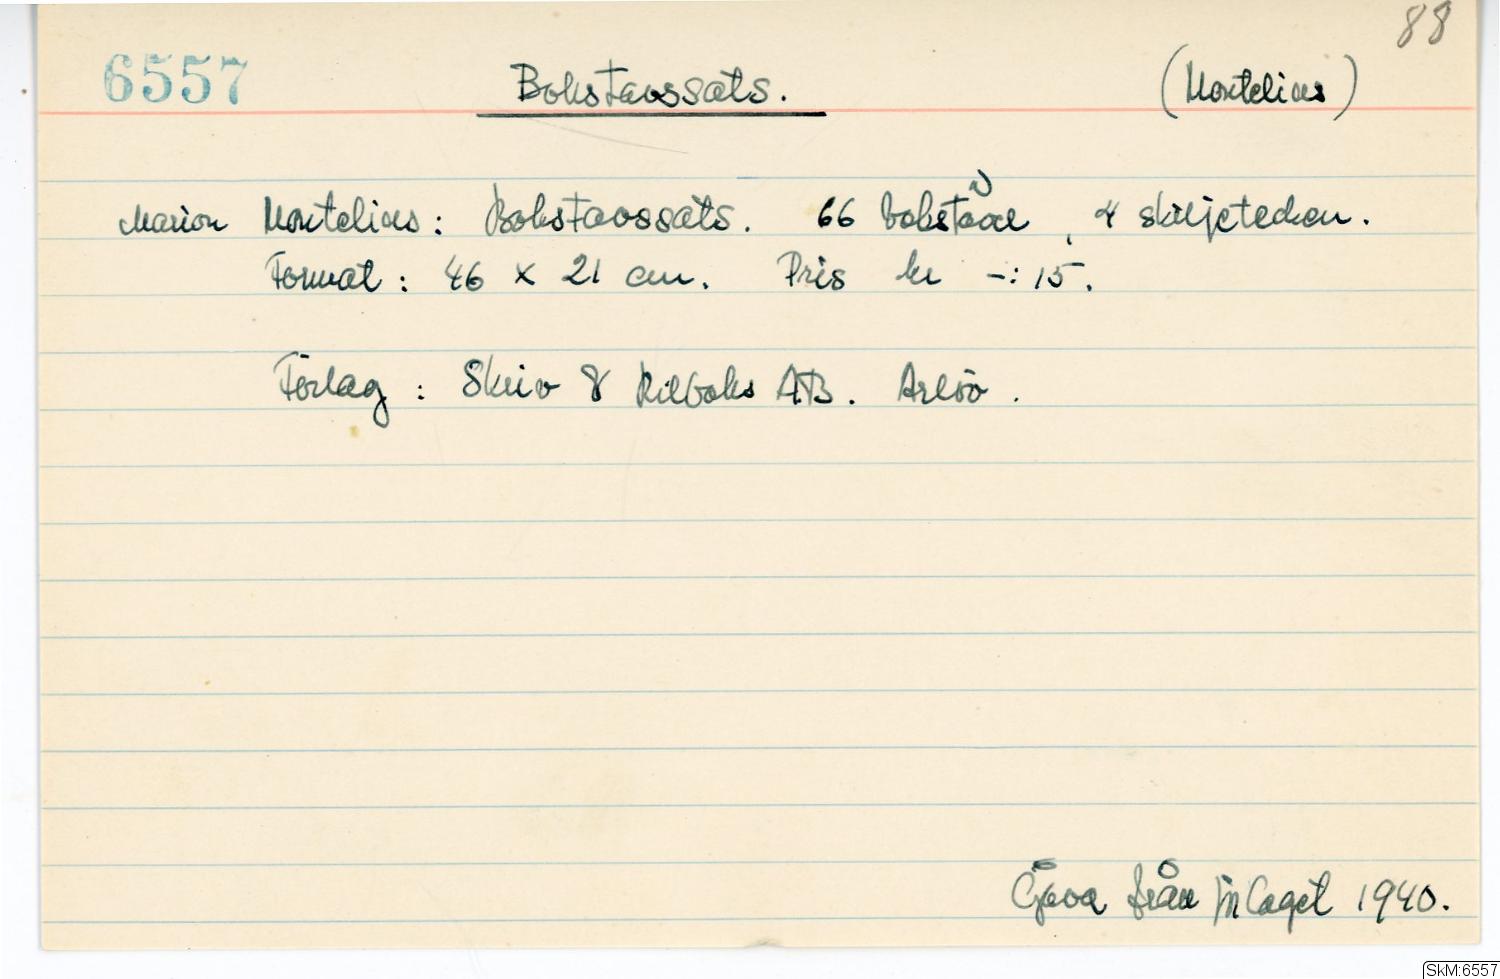 88
6557 Bokstavssats. (Montelius)
Marion Montelius: Bokstavssats. 66 bokstäver, 4 skiljetecken.
Format: 46 x 21 cm. Pris kr -:15.
Förlag: Skriv & Ritboks AB. Arlöv.
Gåva från förlaget 1940.
SkM:6557